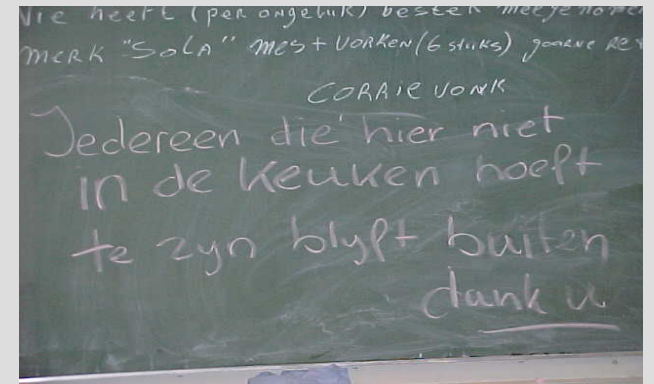 Wie heeft (per ongeluk) bestek meegenomen
merk "SOLA" mes + vorken (6 stuks) gaarne
CORRIE VONK
Iedereen die hier niet
in de keuken hoeft
te zyn blyft buiten
dank u